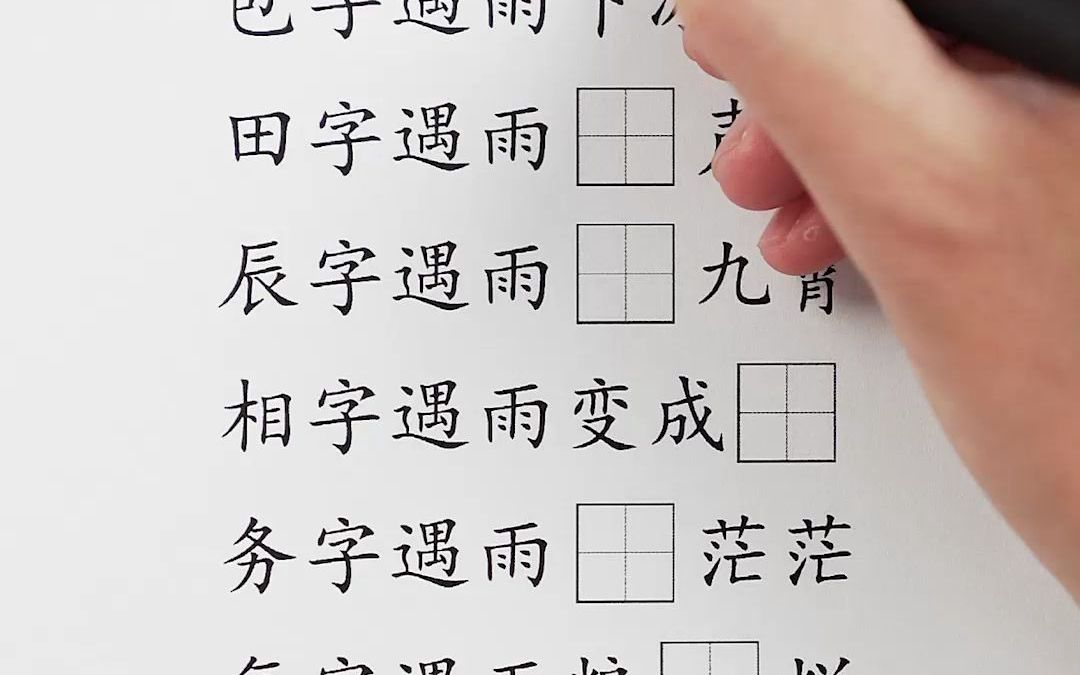 包字遇雨下
田字遇雨
辰字遇雨 九霄
相字遇雨变成
务字遇雨 茫茫
字遇雨